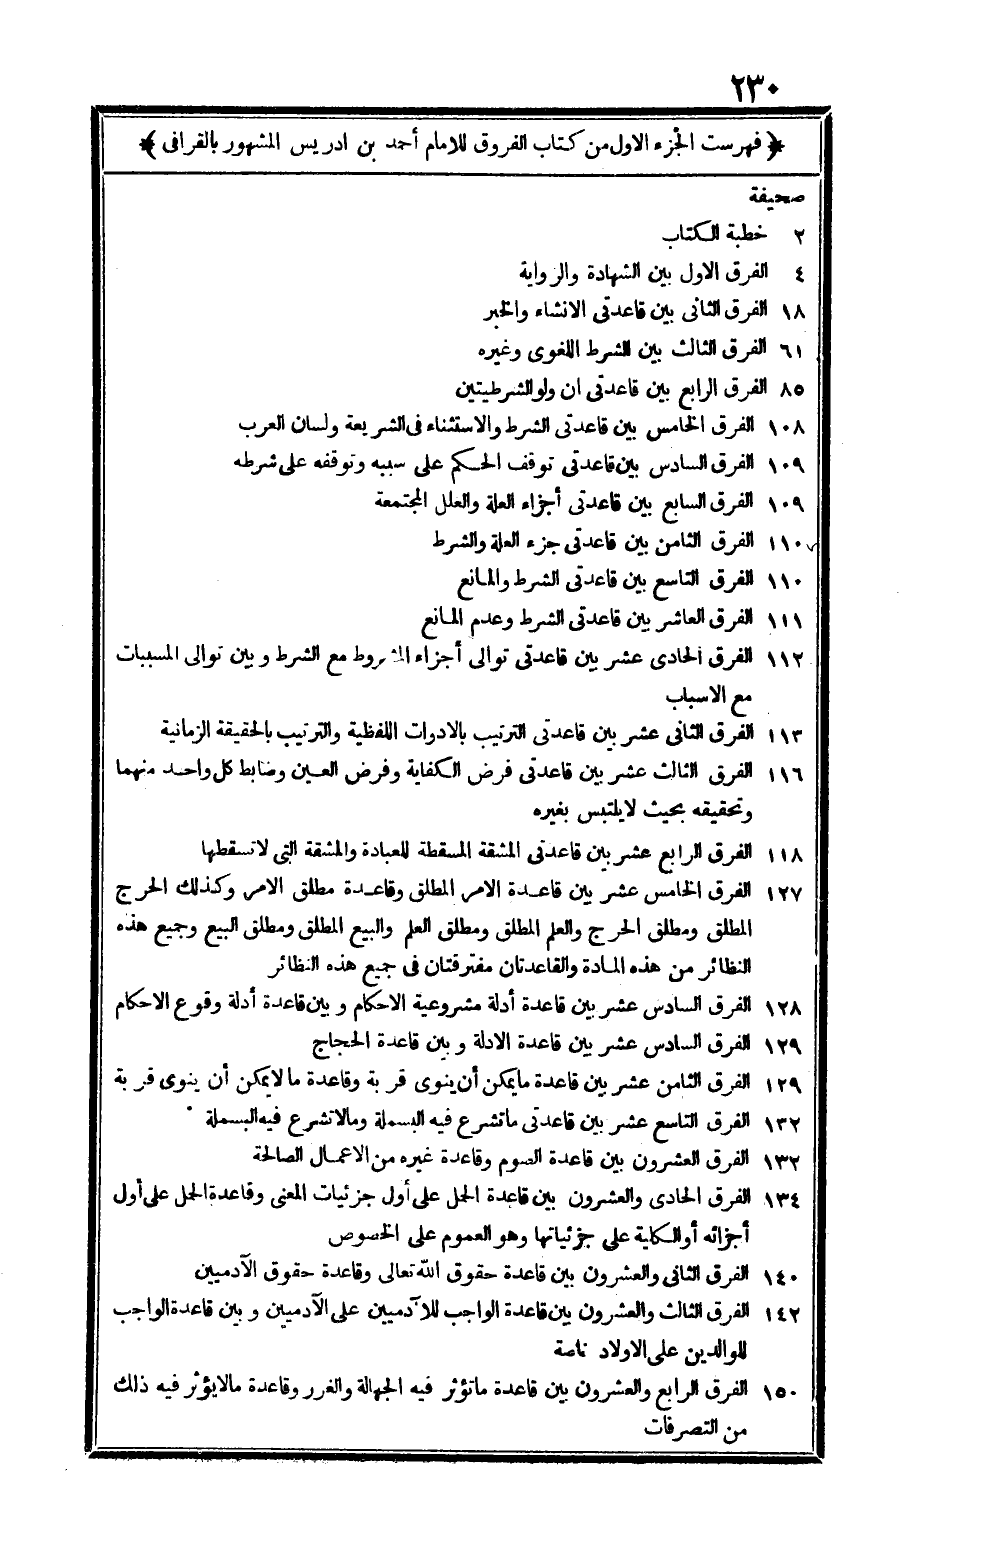 ٢٣٠
﴿ فهرست الجزء الاول من كتاب الفروق للامام أحمد بن ادريس المشهور بالقرافى ﴾
صحيفة
٢ خطبة الكتاب
٤ الفرق الاول بين الشهادة والرواية
١٨ الفرق الثانى بين قاعدتى الانشاء والخبر
٦١ الفرق الثالث بين الشرط اللغوى وغيره
٨٥ الفرق الرابع بين قاعدتى ان ولو الشرطيتين
١٠٨ الفرق الخامس بين قاعدتى الشرط والاستثناء فى الشريعة ولسان العرب
١٠٩ الفرق السادس بين قاعدتى توقف الحكم على سببه وتوقفه على شرطه
١٠٩ الفرق السابع بين قاعدتى أجزاء العلة والعلل المجتمعة
١١٠ الفرق الثامن بين قاعدتى جزء العلة والشرط
١١٠ الفرق التاسع بين قاعدتى الشرط والمانع
١١١ الفرق العاشر بين قاعدتى الشرط وعدم المانع
١١٢ الفرق الحادى عشر بين قاعدتى توالى أجزاء المشروط مع الشرط وبين توالى المسببات
مع الاسباب
١١٣ الفرق الثانى عشر بين قاعدتى الترتيب بالادوات اللفظية والترتيب بالحقيقة الزمانية
١١٦ الفرق الثالث عشر بين قاعدتى فرض الكفاية وفرض العين وضابط كل واحد منهما
وتحقيقه بحيث لايلتبس بغيره
١١٨ الفرق الرابع عشر بين قاعدتى المشقة المسقطة للعبادة والمشقة التى لاتسقطها
١٢٧ الفرق الخامس عشر بين قاعدة الامر المطلق وقاعدة مطلق الامر وكذلك الحرج
المطلق ومطلق الحرج والعلم المطلق ومطلق العلم والبيع المطلق ومطلق البيع وجميع هذه
النظائر من هذه المادة والقاعدتان مفترقتان فى جميع هذه النظائر
١٢٨ الفرق السادس عشر بين قاعدة أدلة مشروعية الاحكام وبين قاعدة أدلة وقوع الاحكام
١٢٩ الفرق السادس عشر بين قاعدة الادلة وبين قاعدة الحجاج
١٢٩ الفرق الثامن عشر بين قاعدة مايمكن أن ينوى قربة وقاعدة ما لايمكن أن ينوى قربة
١٣٢ الفرق التاسع عشر بين قاعدتى ماتشرع فيه البسملة ومالاتشرع فيه البسملة
١٣٢ الفرق العشرون بين قاعدة الصوم وقاعدة غيره من الاعمال الصالحة
١٣٤ الفرق الحادى والعشرون بين قاعدة الحمل على أول جزئيات المعنى وقاعدة الحمل على أول
أجزائه أو الكلية على جزئياتها وهو العموم على الخصوص
١٤٠ الفرق الثانى والعشرون بين قاعدة حقوق الله تعالى وقاعدة حقوق الآدميين
١٤٢ الفرق الثالث والعشرون بين قاعدة الواجب للآدميين على الآدميين وبين قاعدة الواجب
للوالدين على الاولاد خاصة
١٥٠ الفرق الرابع والعشرون بين قاعدة ماتؤثر فيه الجهالة والغرر وقاعدة مالايؤثر فيه ذلك
من التصرفات